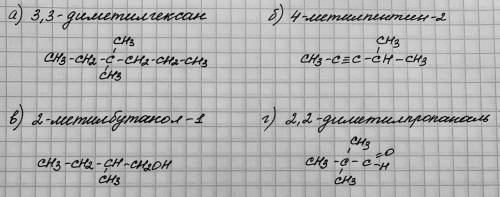 а) 3,3-диметилгексан
CH3
CH3-CH2-C-CH2-CH2-CH3
CH3
б) 4-метилпентин-2
CH3
CH3-C≡C-CH-CH3
в) 2-метилбутанол-1
CH3-CH2-CH-CH2OH
CH3
г) 2,2-диметилпропаналь
CH3
CH3-C-C=O
-H
CH3